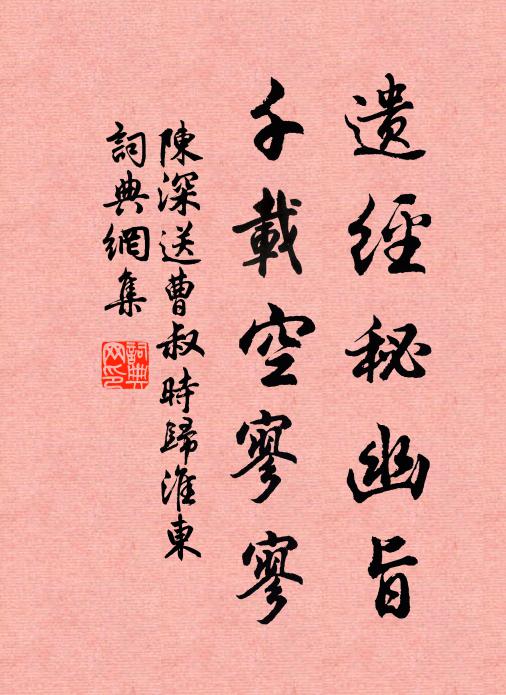 遗經秘幽旨
千載空寥寥
陳深送曹叔時歸淮東
詞典網集
詞典网印